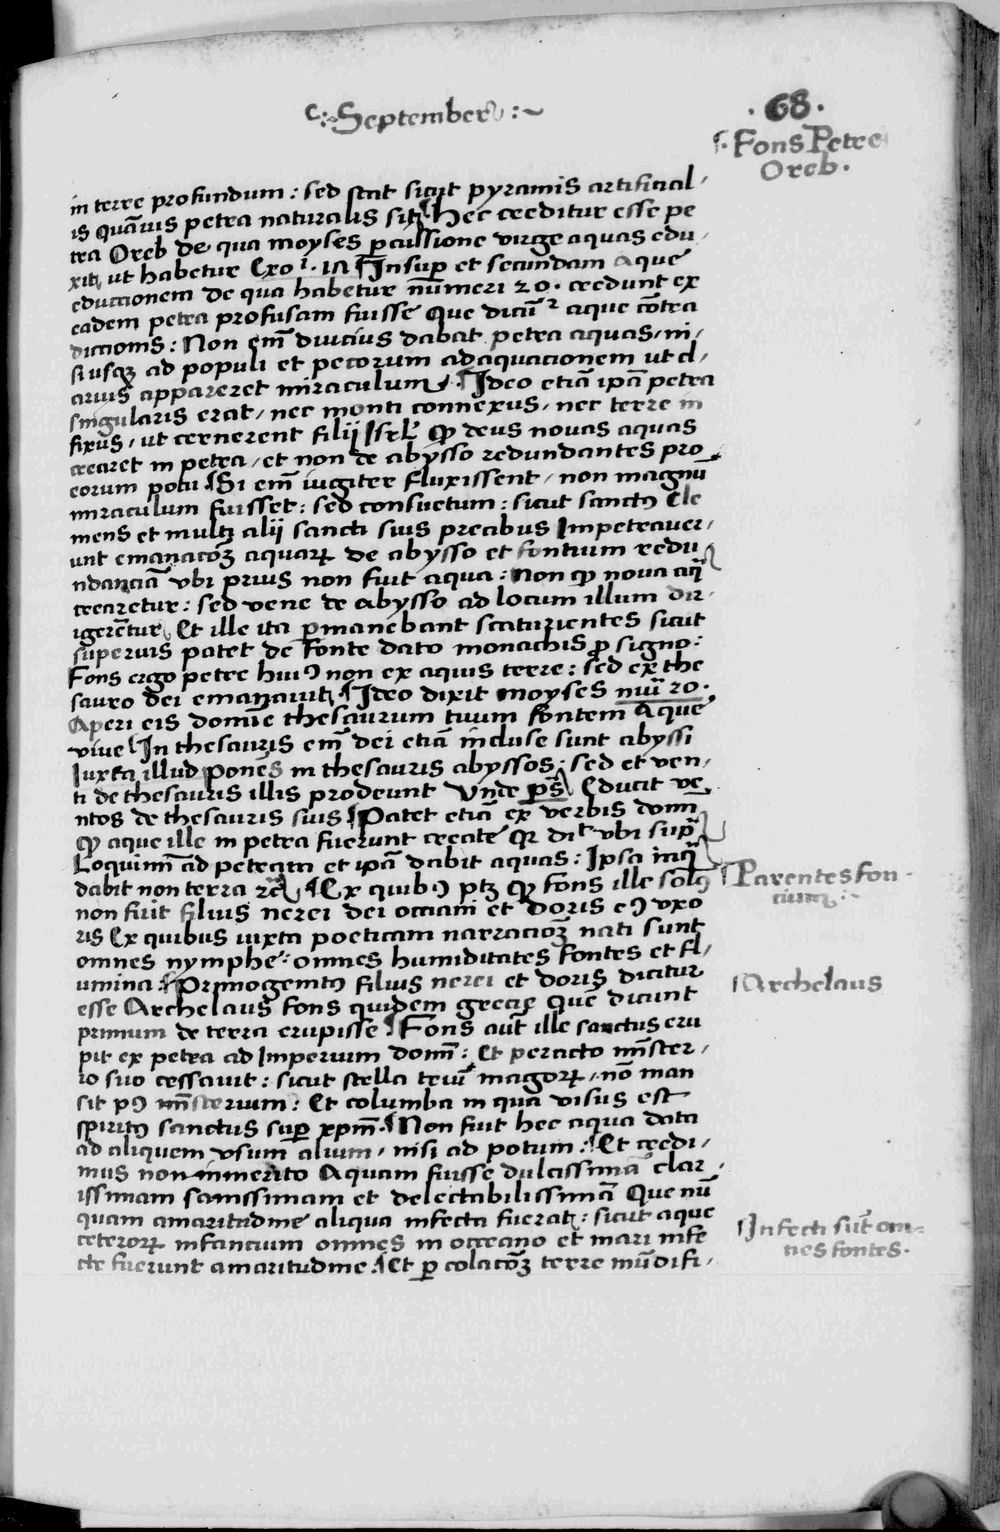 September
· 68 ·
Fons Petre
Oreb.
in terre profundum : sed stat sicut pyramis artificial
is quāuis petra naturalis sit Hec creditur esse pe
tra Oreb de qua moyses pcussione virge aquas edu
xit, ut habetur Exo i. 17 Insup et secundam aque
eductionem de qua habetur numeri 20 . credunt ex
eadem petra profusam fuisse Que dicūt aque cōtra
dictionis : Non em̄ diucius dabat petra aquas, ni
si usq ad populi et pecorum adaquacionem ut cl
arius appareret miraculum . Ideo etiā ipā petra
singularis erat, nec monti connexus, nec terre in
fixus, ut cernerent filij Isrl' qp deus nouas aquas
crearet in petra, et non de abysso redundantes pro
eorum potu Si em̄ iugiter fluxissent, non magnū
miraculum fuisset : sed consuetum : sicut sanctꝰ Cle
mens et multi alij sancti suis precibus Impetrauer
unt emanacōꝫ aquarꝝ de abysso et fontium redu
ndanciā vbi prius non fuit aqua : Non qp noua aq̄
crearetur : sed vene de abysso ad locum illum dir
igerētur, Et ille ita pmanebant scaturientes sicut
superius patet de fonte dato monachis p signo :
Fons ergo petre huiꝰ non ex aquis terre : sed ex the
sauro dei emanauit Ideo dixit moyses nūi 20 .
Aperi eis domīe thesaurum tuum fontem Aque
viue In thesauris em̄ dei etiā incluse sunt abyssi
Iuxta illud Ponēs in thesauris abyssos : sed et ven
ti de thesauris illis prodeunt Unde pś Educit ve
ntos de thesauris suis Patet etiā ex verbis domi
qp aque ille in petra fuerunt create Qr dit vbi sup̄
Loquimī ad petram et ipā dabit aquas : Ipsa inq̄
dabit non terra ꝛc Ex quibꝰ ptꝫ qp fons ille solꝰ
non fuit filius nerei dei occiani et doris eꝰ vxo
ris Ex quibus iuxta poeticam narracioꝫ nati sunt
omnes nymphe : omnes humiditates fontes et fl
umina : Primogenitꝰ filius nerei et doris dicitur
esse Archelaus fons quidem grecie que dicunt
primum de terra erupisse Fons aut̄ ille sanctus eru
pit ex petra ad Imperium domī : Et peracto mīster
io suo cessauit : sicut stella triū magorꝝ, nō man
sit pꝰ mīsterium : Et columba in qua visus est
spiritꝰ sanctus sup xpm̄ . Non fuit hec aqua data
ad aliquem vsum alium, nisi ad potum : Et credi
mus non inmerito Aquam fuisse dulcissimā clar
issimam sanissimam et delectabilissimā Que nū
quam amaritudine aliqua infecta fuerat : sicut aque
ceterorꝝ infancium omnes in occeano et mari infe
cte fuerunt amaritudine . Et p colacōꝫ terre mūdifi
Parentes fon
cium
Archelaus
Infecti sūt om
nes fontes.